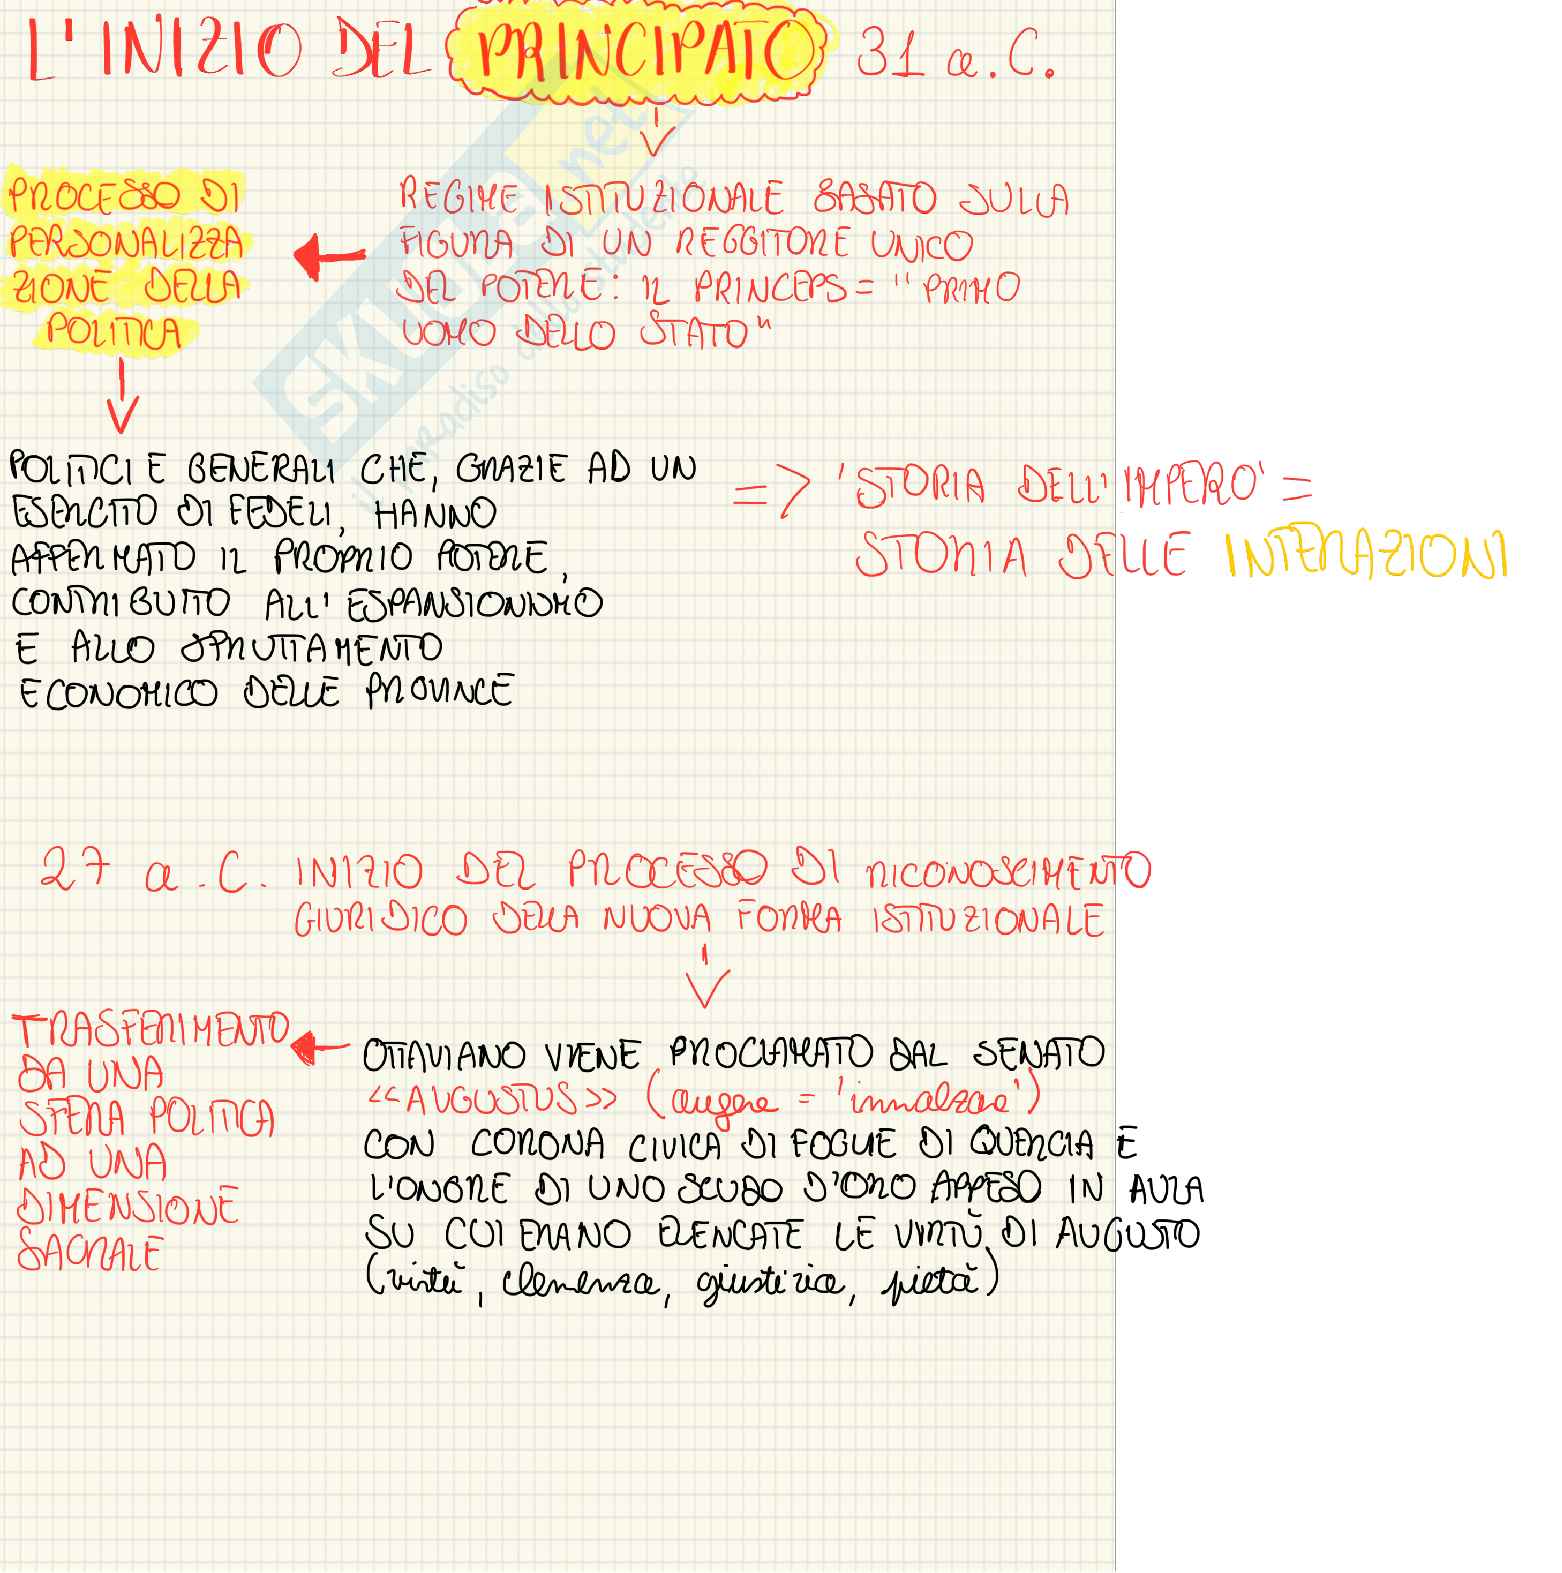 L'INIZIO DEL PRINCIPATO 31 a.C.
REGIME ISTITUZIONALE BASATO SULLA
FIGURA DI UN REGGITORE UNICO
DEL POTERE: IL PRINCEPS = "PRIMO
UOMO DELLO STATO"
PROCESSO DI
PERSONALIZZA
ZIONE DELLA
POLITICA
POLITICI E GENERALI CHE, GRAZIE AD UN
ESERCITO DI FEDELI, HANNO
AFFERMATO IL PROPRIO POTERE,
CONTRIBUITO ALL'ESPANSIONISMO
E ALLO SFRUTTAMENTO
ECONOMICO DELLE PROVINCE
=> 'STORIA DELL'IMPERO' =
STORIA DELLE INTERAZIONI
27 a.C. INIZIO DEL PROCESSO DI RICONOSCIMENTO
GIURIDICO DELLA NUOVA FORMA ISTITUZIONALE
OTTAVIANO VIENE PROCLAMATO DAL SENATO
<<AUGUSTUS>> (augere = 'innalzare')
CON CORONA CIVICA DI FOGLIE DI QUERCIA E
L'ONORE DI UNO SCUDO D'ORO APPESO IN AULA
SU CUI ERANO ELENCATE LE VIRTÙ DI AUGUSTO
(virtù, clemenza, giustizia, pietà)
TRASFERIMENTO
DA UNA
SFERA POLITICA
AD UNA
DIMENSIONE
SACRALE
SKUOLA.net